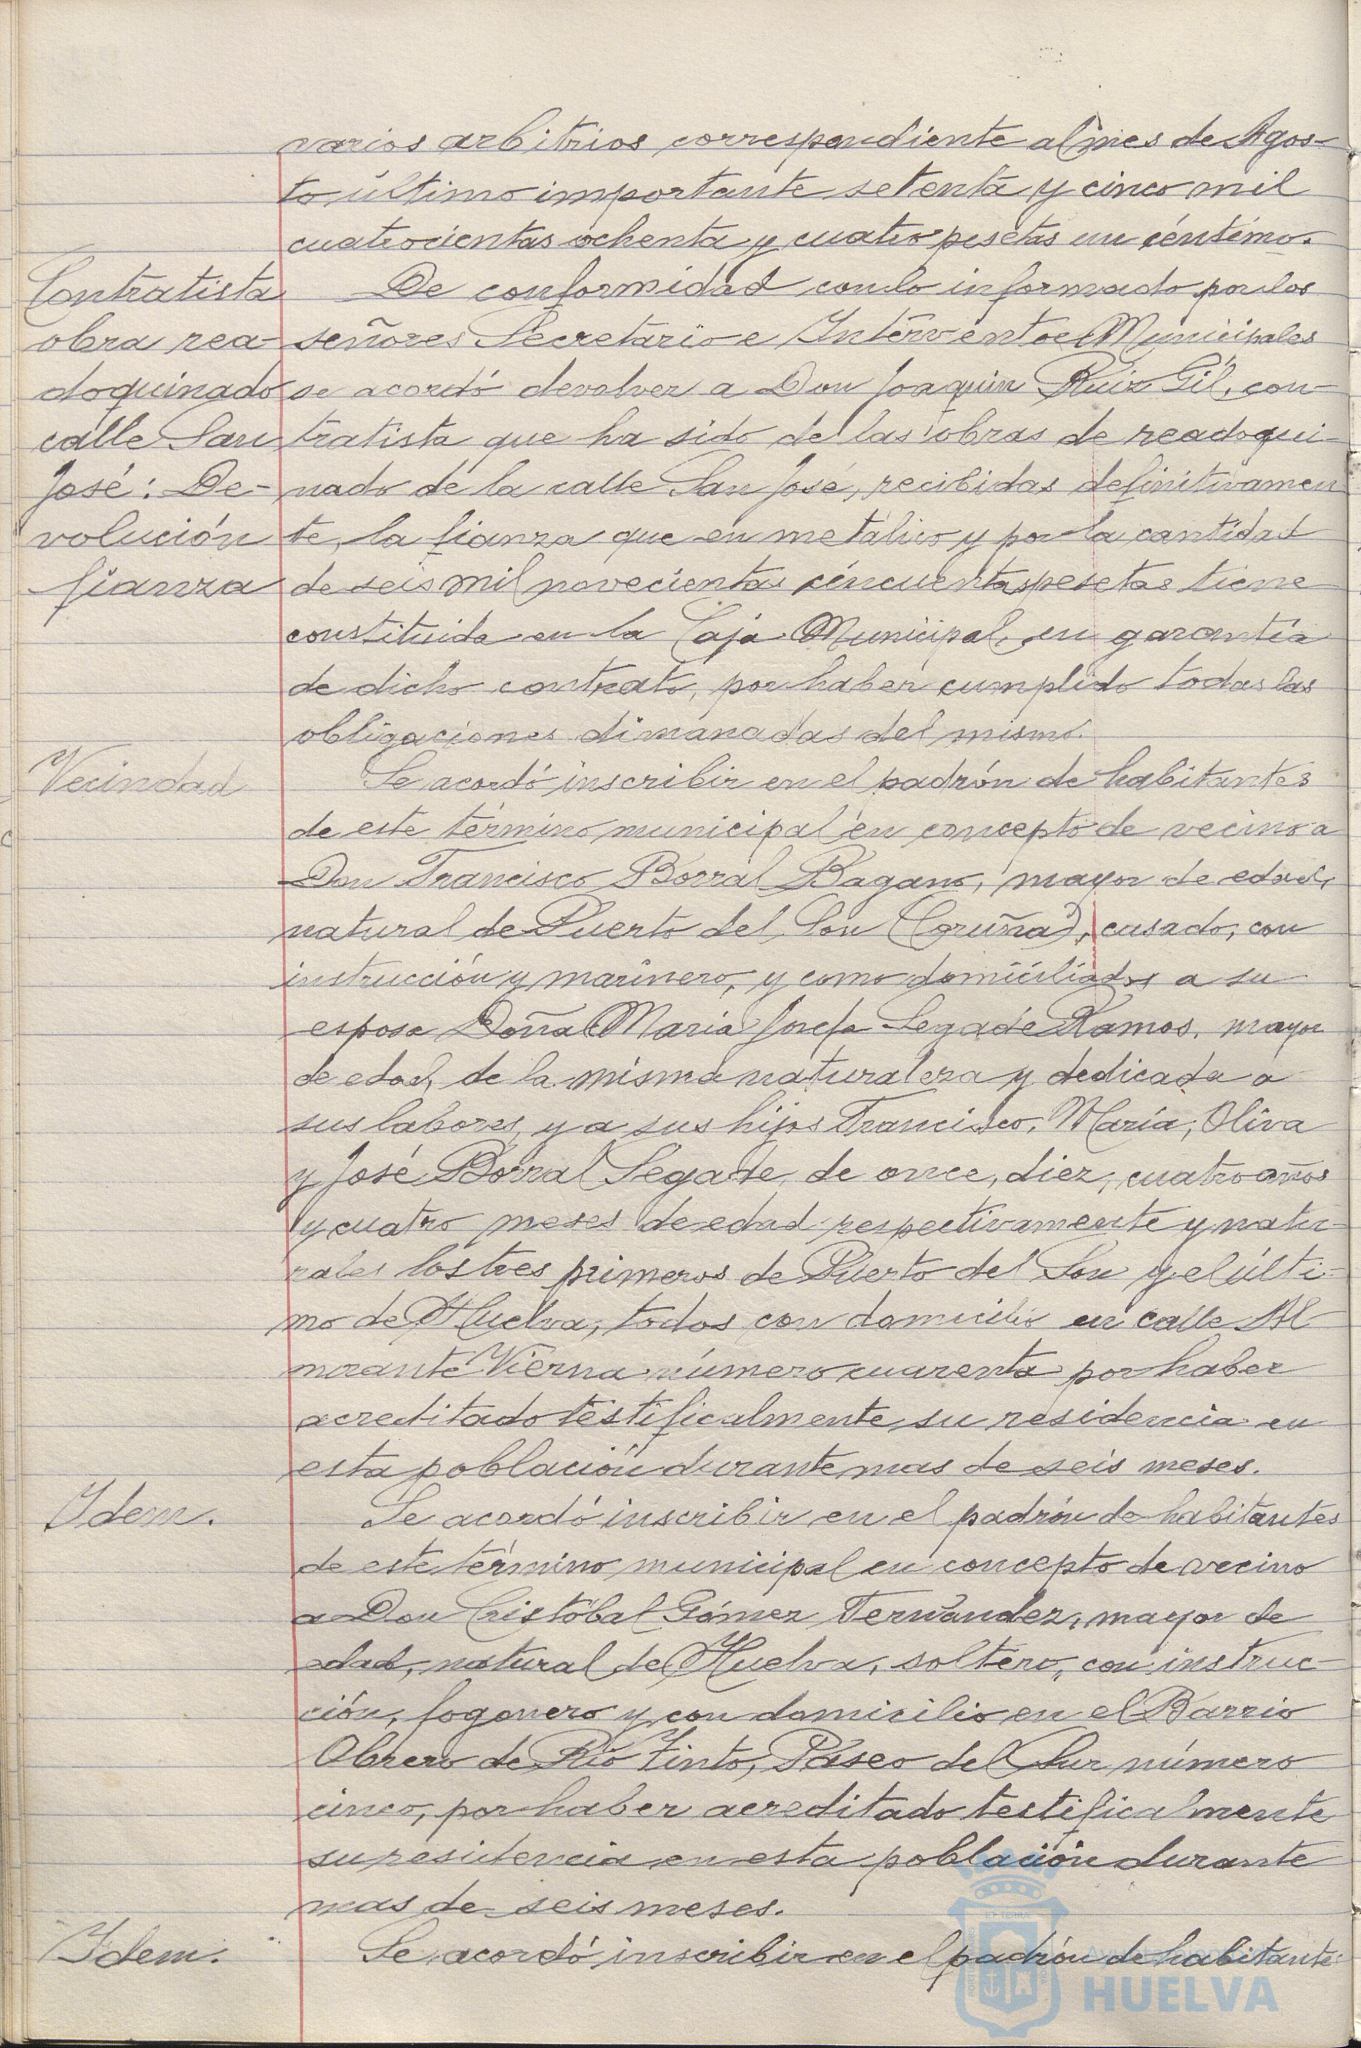 varios arbitrios correspondiente al mes de Agos-
to último importante setenta y cinco mil
cuatrocientas ochenta y cuatro pesetas un céntimo.
Contratista
obra rea-
doquinado
calle San
José: De-
volución
fianza
De conformidad con lo informado por los
señores Secretario e Interventor Municipales
se acordó devolver a Don Joaquin Ruiz Gil, con-
tratista que ha sido de las obras de readoqui-
nado de la calle San José, recibidas definitivamen
te, la fianza que en metálico y por la cantidad
de seis mil novecientas cincuenta pesetas tiene
constituida en la Caja Municipal, en garantía
de dicho contrato, por haber cumplido todas las
obligaciones dimanadas del mismo.
Vecindad
Se acordó inscribir en el padrón de habitantes
de este término municipal en concepto de vecino a
Don Francisco Borral Bagano, mayor de edad,
natural de Puerto del Son (Coruña), casado, con
instrucción y marinero, y como domiciliados a su
esposa Doña Maria Josefa Segade Ramos, mayor
de edad, de la misma naturaleza y dedicada a
sus labores, y a sus hijos Francisco, María, Oliva
y José Borral Segade, de once, diez, cuatro años
y cuatro meses de edad respectivamente y natu-
rales los tres primeros de Puerto del Son y el últi-
mo de Huelva, todos con domicilio en calle Al
mirante Vierna número cuarenta por haber
acreditado testificalmente su residencia en
esta población durante mas de seis meses.
Idem.
Se acordó inscribir en el padrón de habitantes
de este término municipal en concepto de vecino
a Don Cristóbal Gómez Fernández, mayor de
edad, natural de Huelva, soltero, con instruc-
ción, fogonero y con domicilio en el Barrio
Obrero de Rio Tinto, Paseo del Sur número
cinco, por haber acreditado testificalmente
su residencia en esta población durante
mas de seis meses.
Idem.
Se acordó inscribir en el padrón de habitantes
HUELVA